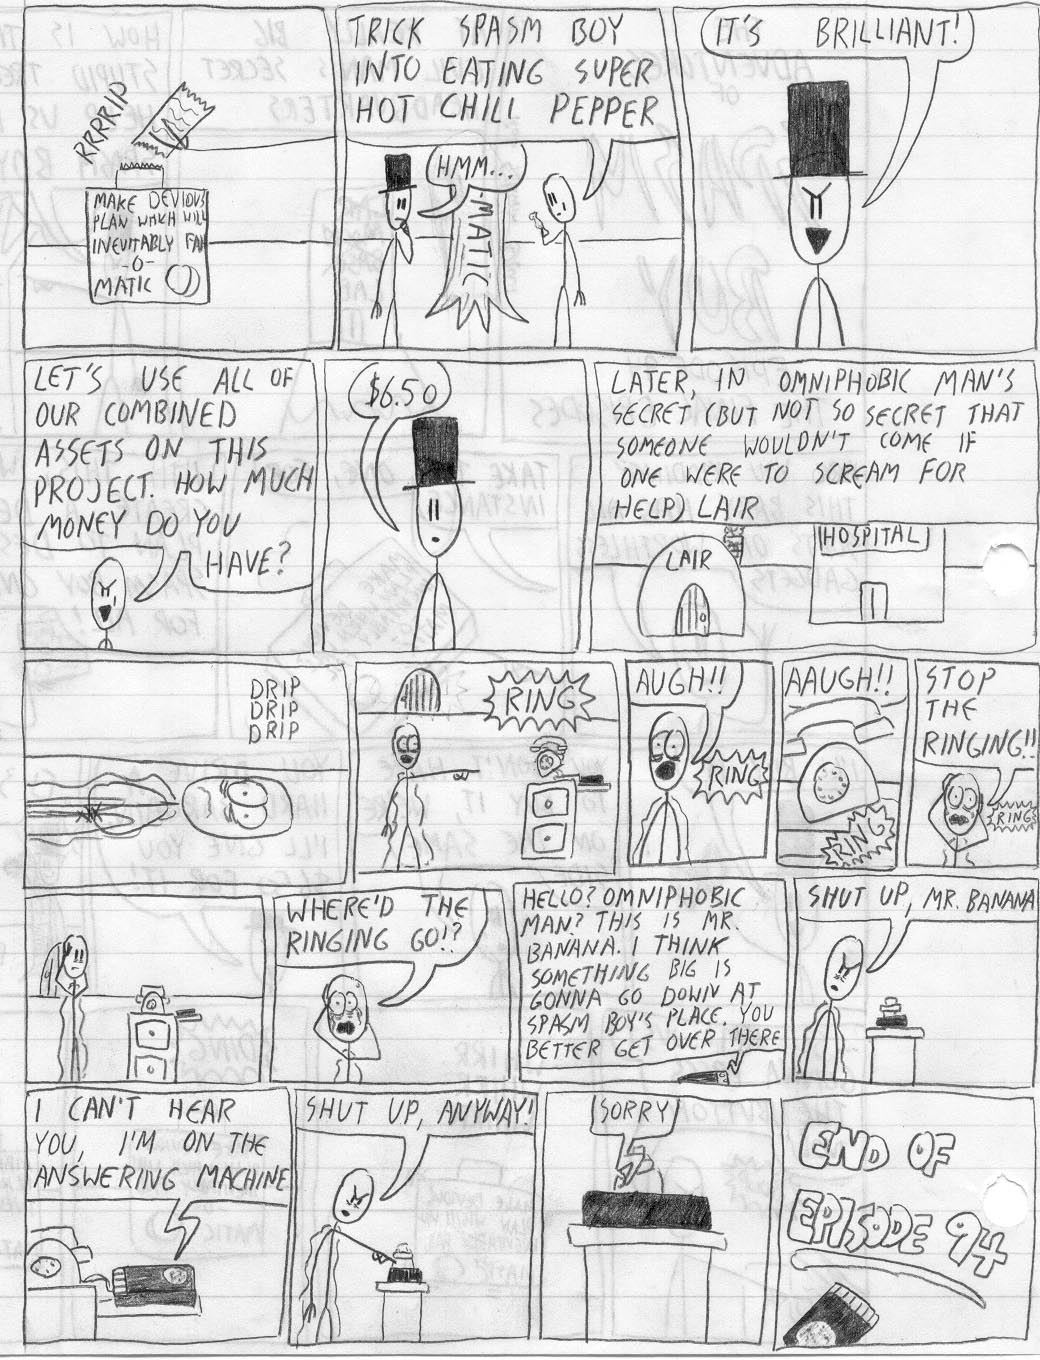 RRRRIP
MAKE DEVIOUS
PLAN WHICH WILL
INEVITABLY FAIL
-O-
MATIC
TRICK SPASM BOY
INTO EATING SUPER
HOT CHILL PEPPER
HMM...
-MATIC
IT'S BRILLIANT!
LET'S USE ALL OF
OUR COMBINED
ASSETS ON THIS
PROJECT. HOW MUCH
MONEY DO YOU
HAVE?
$6.50
LATER, IN OMNIPHOBIC MAN'S
SECRET (BUT NOT SO SECRET THAT
SOMEONE WOULDN'T COME IF
ONE WERE TO SCREAM FOR
HELP) LAIR
LAIR
HOSPITAL
DRIP
DRIP
DRIP
RING
AUGH!!
RING
AAUGH!!
RING
STOP
THE
RINGING!!
RING
WHERE'D THE
RINGING GO!?
HELLO? OMNIPHOBIC
MAN? THIS IS MR.
BANANA. I THINK
SOMETHING BIG IS
GONNA GO DOWN AT
SPASM BOY'S PLACE. YOU
BETTER GET OVER THERE
SHUT UP, MR. BANANA
I CAN'T HEAR
YOU, I'M ON THE
ANSWERING MACHINE
SHUT UP, ANYWAY!
SORRY
END OF
EPISODE 94